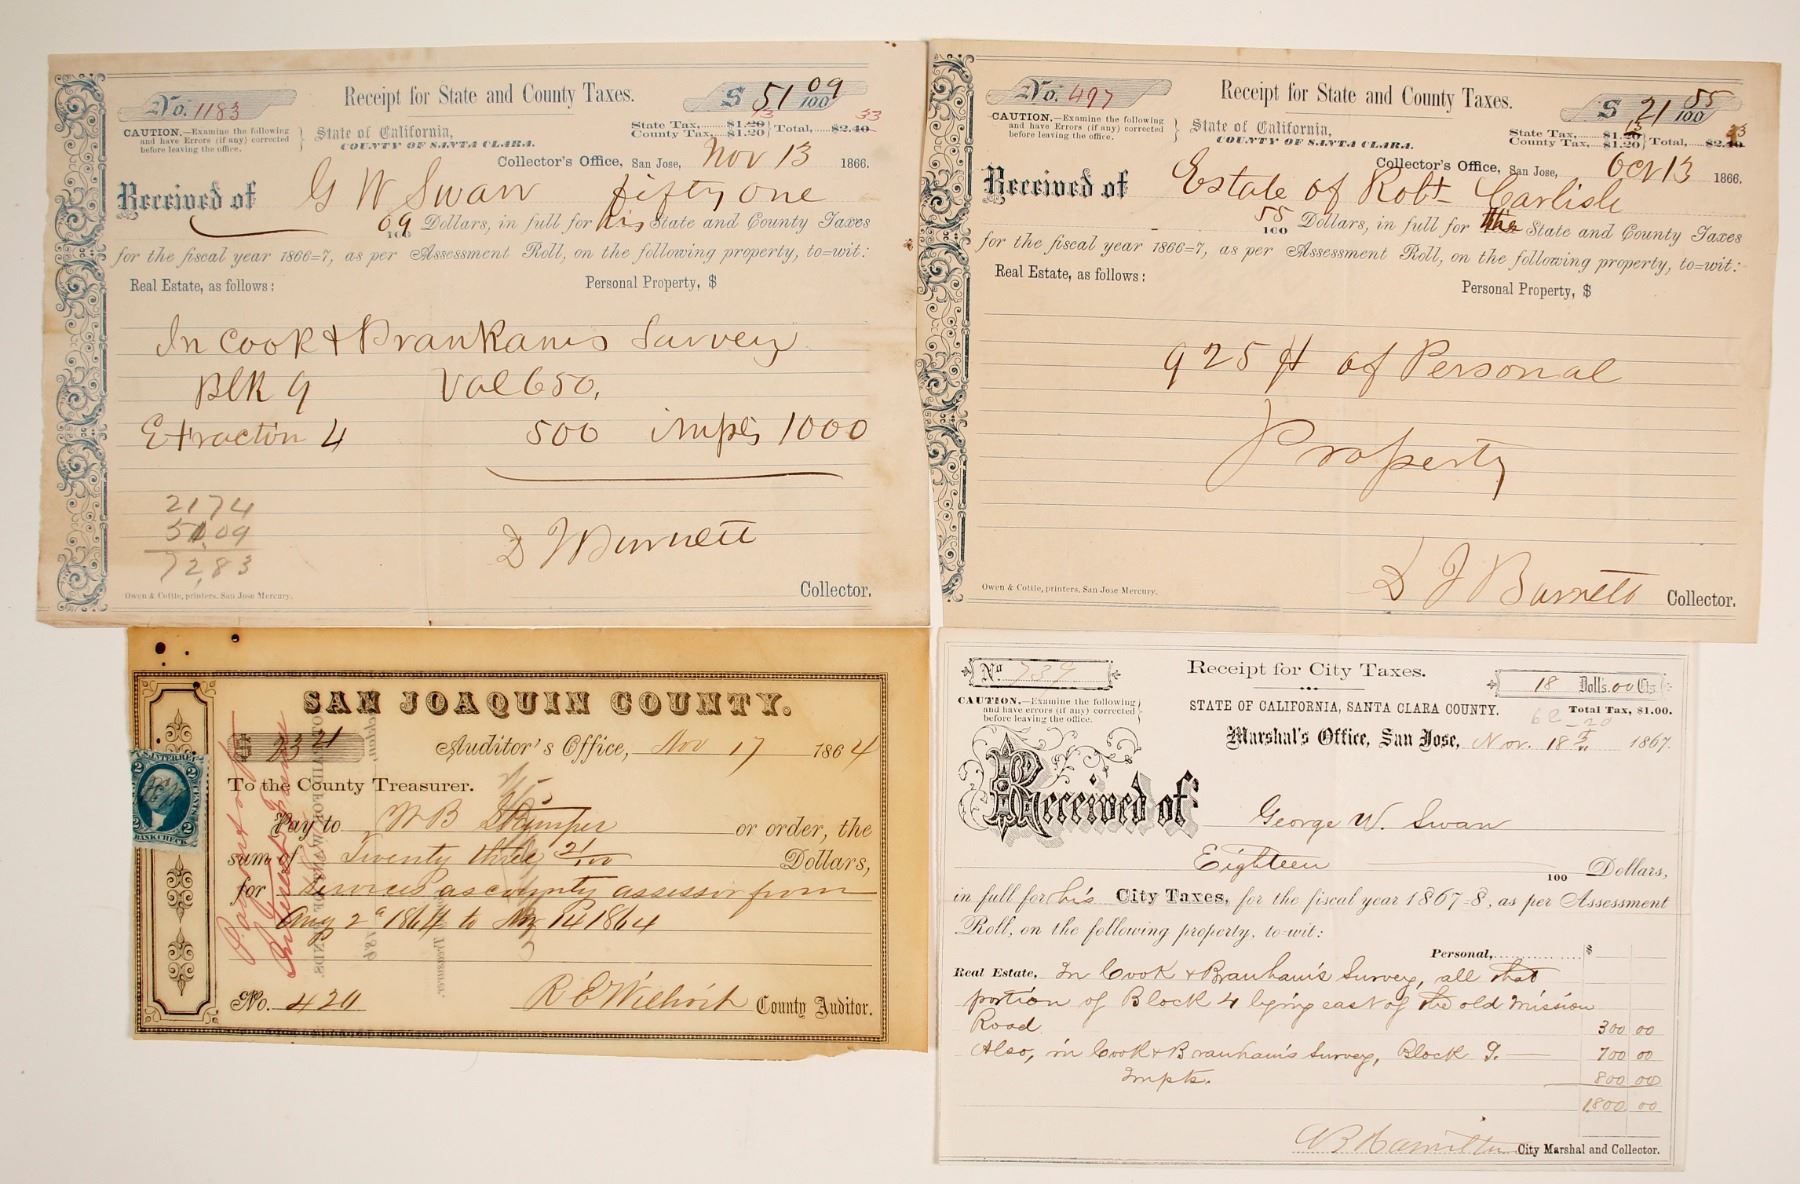 No. 1183
Receipt for State and County Taxes.
$ 51 09/100
CAUTION.—Examine the following
and have Errors (if any) corrected
before leaving the office.
State of California,
COUNTY OF SANTA CLARA.
State Tax, $1.20 13
County Tax, $1.20
Total, $2.40 33
Collector's Office, San Jose, Nov 13 1866.
Received of G W Swan fifty one
09/100 Dollars, in full for his State and County Taxes
for the fiscal year 1866=7, as per Assessment Roll, on the following property, to=wit:
Real Estate, as follows: Personal Property, $
In Cook & Brankams Survey
Blk 9 Val 650,
Extraction 4 500 impts 1000
2174
51.09
72,83
D J Burnett
Collector.
Owen & Cottle, printers, San Jose Mercury.
No. 497
Receipt for State and County Taxes.
$ 21 55/100
CAUTION.—Examine the following
and have Errors (if any) corrected
before leaving the office.
State of California,
COUNTY OF SANTA CLARA.
State Tax, $1.20 13
County Tax, $1.20
Total, $2.40 33
Collector's Office, San Jose, Oct 13 1866.
Received of Estate of Robt Carlisle
55/100 Dollars, in full for the State and County Taxes
for the fiscal year 1866=7, as per Assessment Roll, on the following property, to=wit:
Real Estate, as follows:
Personal Property, $
925 $ of Personal
Property
D J Burnett Collector.
Owen & Cottle, printers, San Jose Mercury.
SAN JOAQUIN COUNTY.
$ 23 21 Auditor's Office, Nov 17 1864
To the County Treasurer.
Pay to W B or order, the
sum of Twenty three 21/100 Dollars,
for Services as county assessor from
Aug 2d 1864 to Nov 14 1864
No. 420 R E Wilhoit County Auditor.
U.S. INTER. REV.
2 CENTS 2
BANK CHECK
No. 739
Receipt for City Taxes.
18 Doll's. 00 Cts.
CAUTION.—Examine the following
and have errors (if any) corrected
before leaving the office.
STATE OF CALIFORNIA, SANTA CLARA COUNTY.
Total Tax, $1.00.
Marshal's Office, San Jose, Nov. 18 1867.
Received of George W. Swan
Eighteen 100 Dollars,
in full for his City Taxes, for the fiscal year 1867=8, as per Assessment
Roll, on the following property, to-wit:
Personal, $
Real Estate, In Cook & Branham's Survey, all that
portion of Block 4 lying east of the old Mission
Road 300 00
Also, in Cook & Branham's Survey, Block 9. 700 00
Impts. 800 00
1800 00
Hamilton City Marshal and Collector.